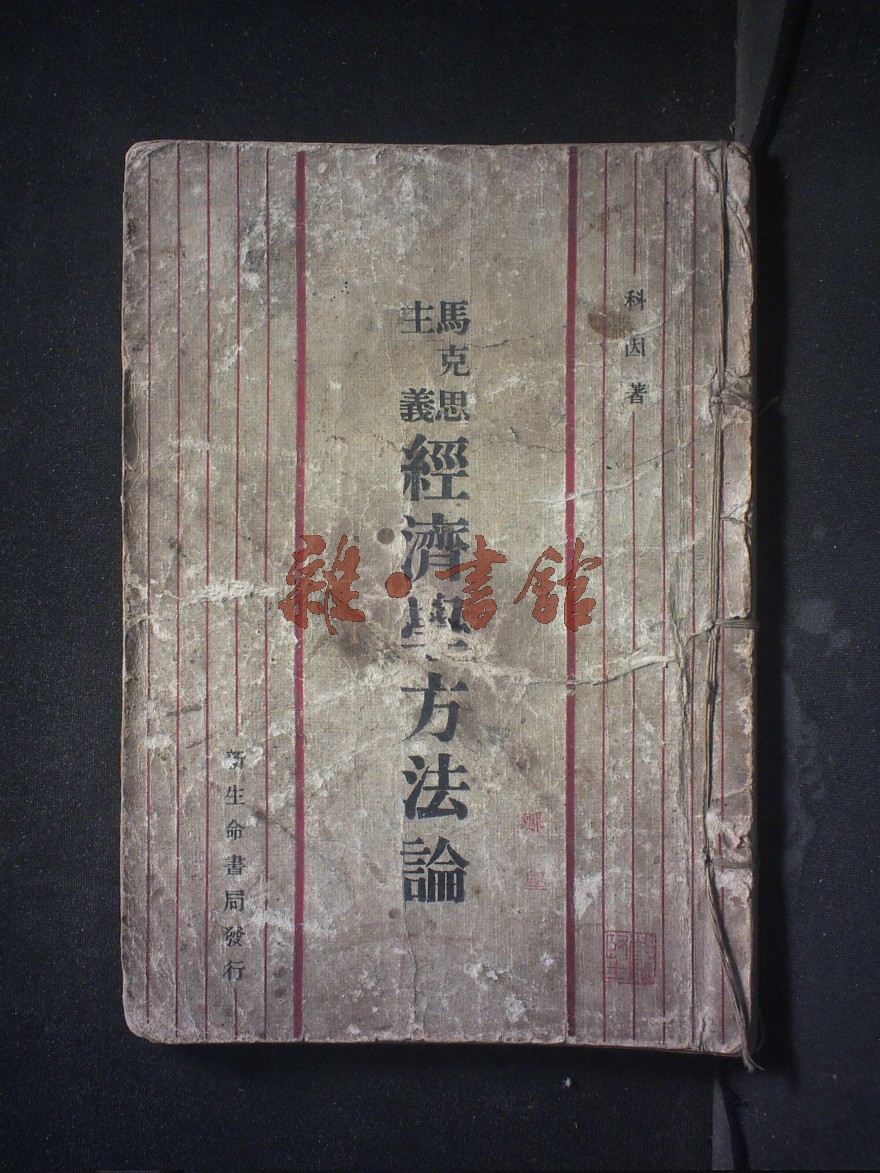 科因著
馬克思
主義
經濟學方法論
新生命書局發行
雜·書館